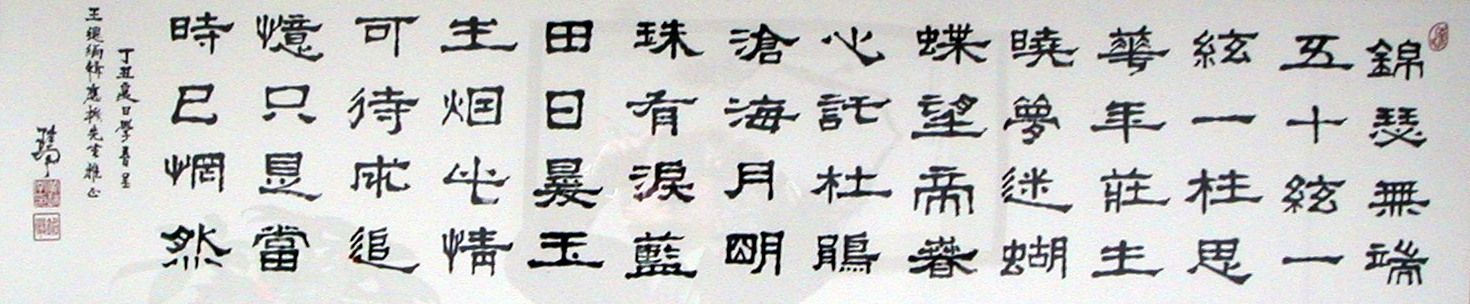 錦瑟無端
五十絃一
絃一柱思
華年莊生
曉夢迷蝴
蝶望帝春
心託杜鵑
滄海月明
珠有淚藍
田日暖玉
生烟此情
可待成追
憶只是當
時已惘然
丁丑夏日學書呈
王總編輯應先生雅正